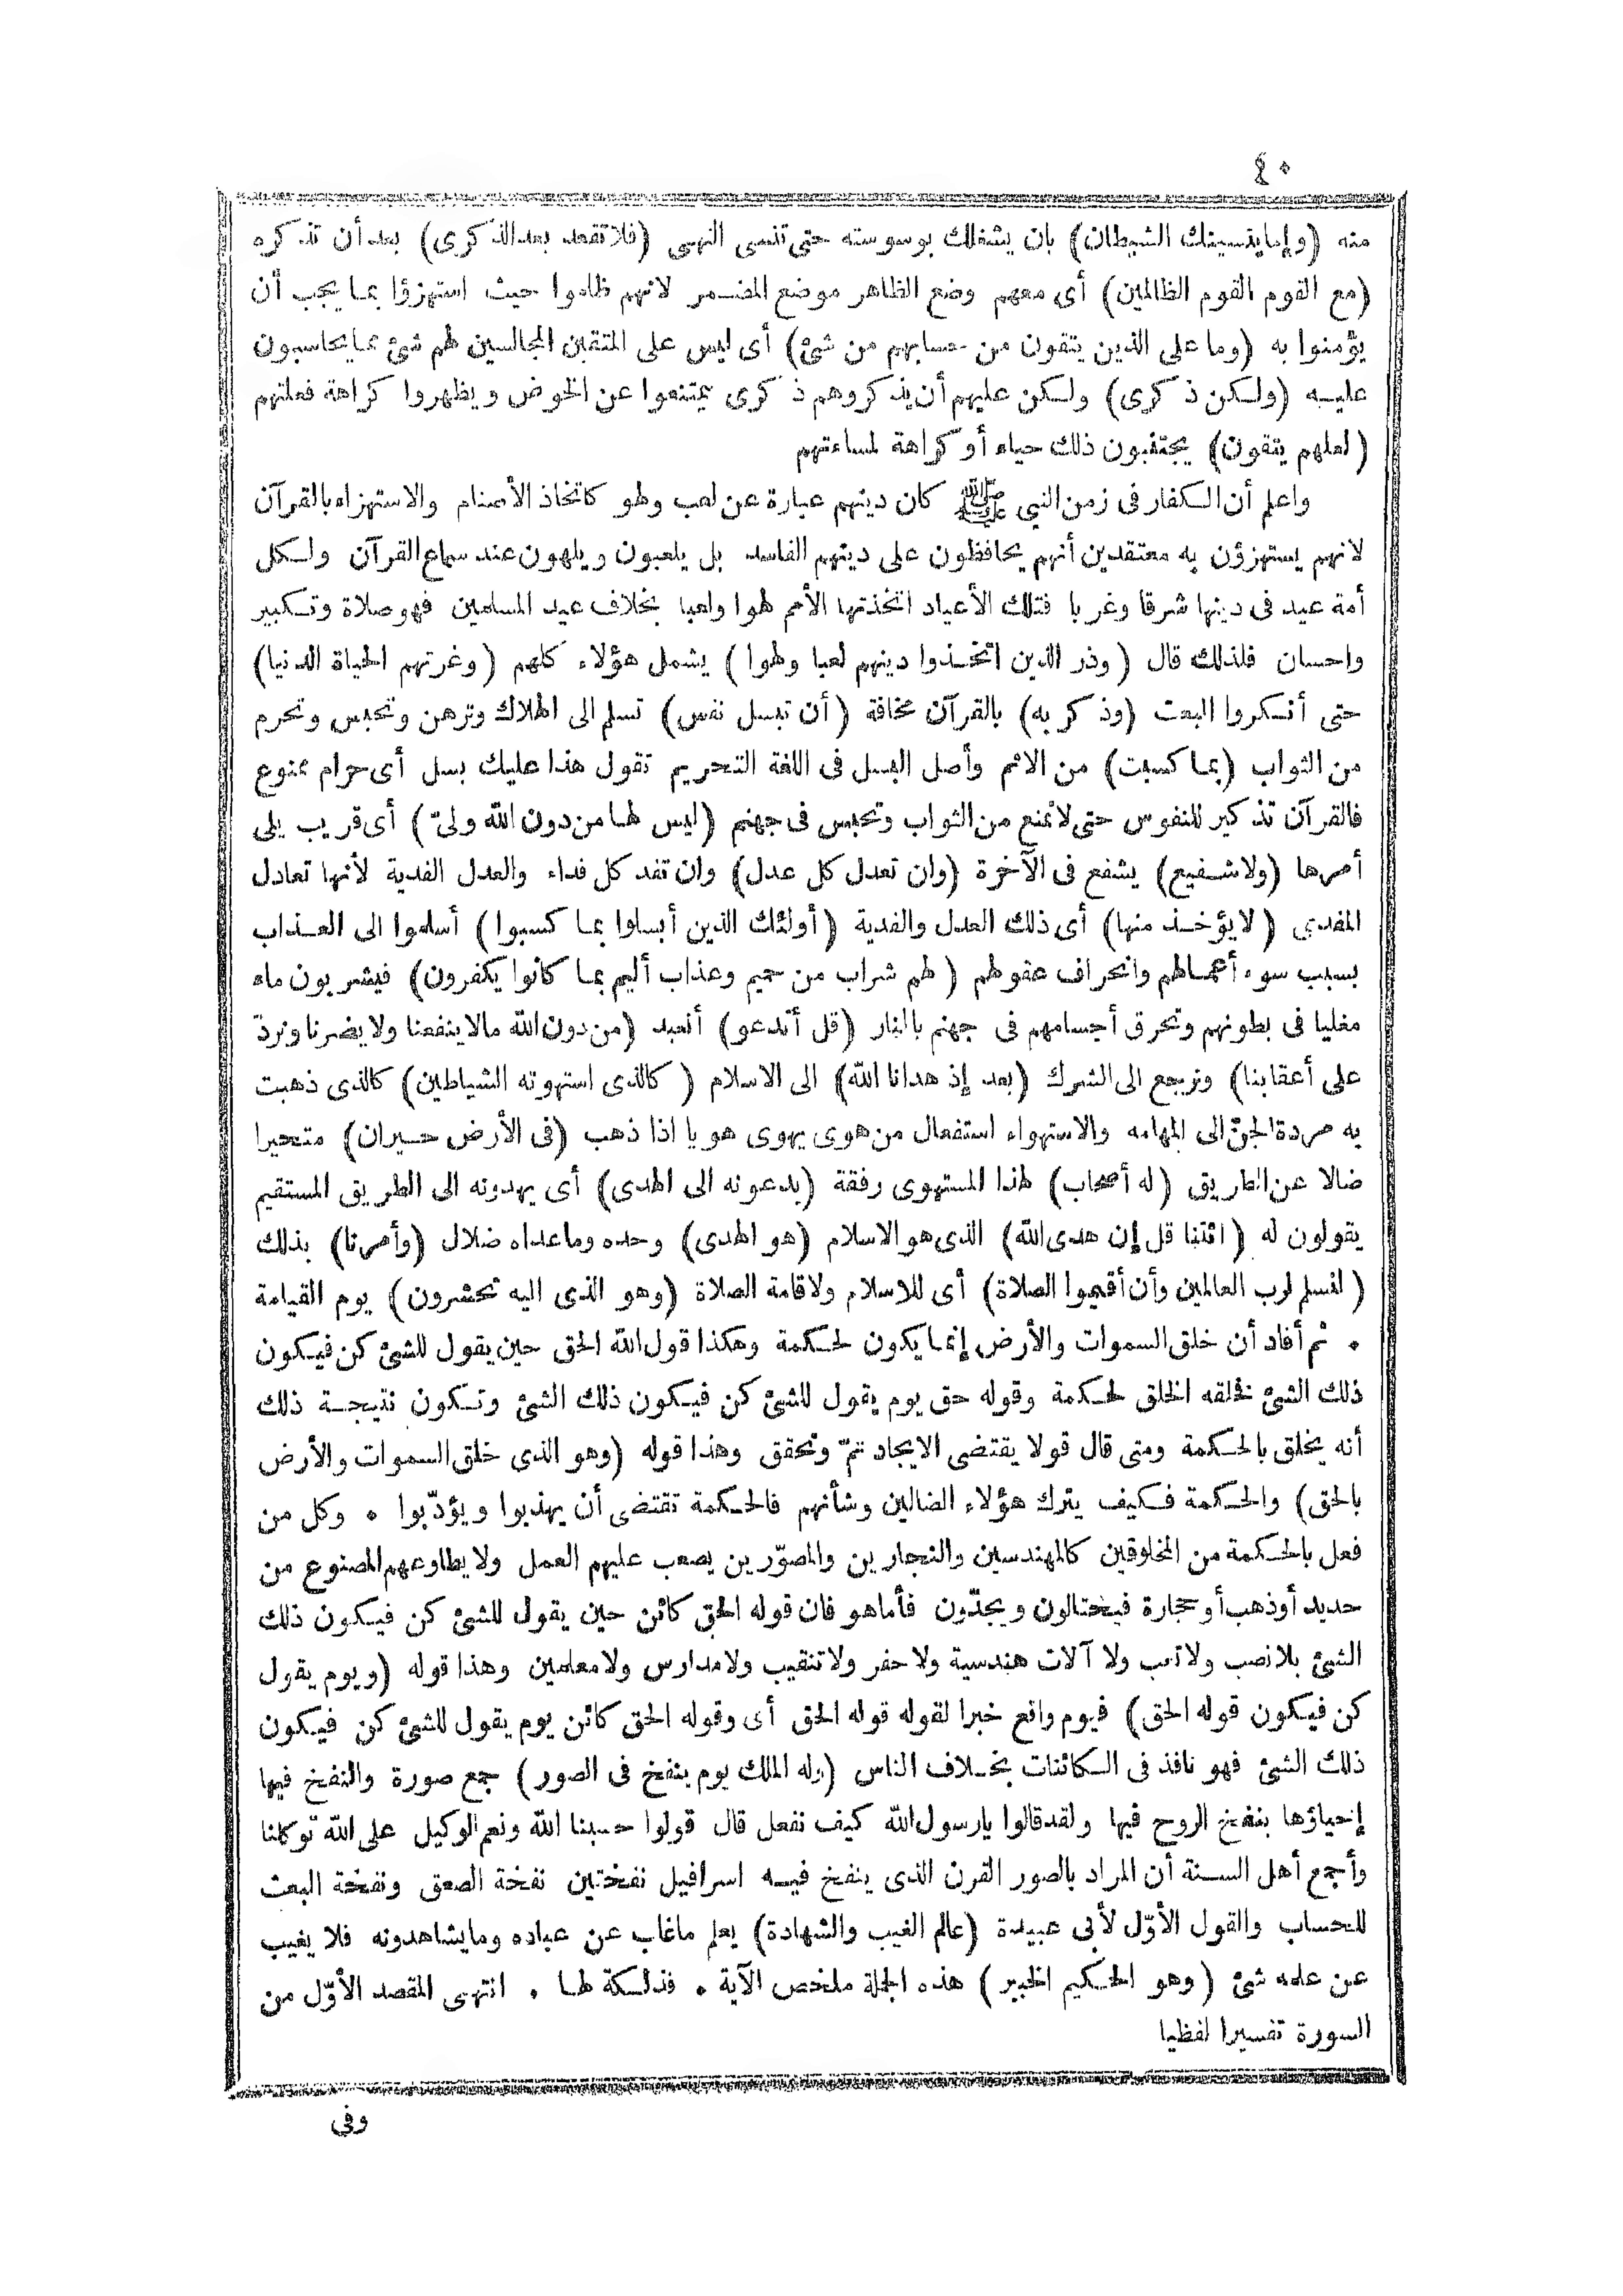 ٤٠
منه (وإما ينسينك الشيطان) بان يشغلك بوسوسته حتى تنسى النهى (فلا تقعد بعد الذكرى) بعد أن تذكره
(مع القوم القوم الظالمين) أى معهم وضع الظاهر موضع المضمر لانهم ظلموا حيث استهزؤا بما يجب أن
يؤمنوا به (وما على الذين يتقون من حسابهم من شئ) أى ليس على المتقين المجالسين لهم شئ مما يحاسبون
عليه (ولكن ذكرى) ولكن عليهم أن يذكروهم ذكرى يمتنعوا عن الخوض ويظهروا كراهة فعلتهم
(لعلهم يتقون) يجتنبون ذلك حياء أو كراهة لمساءتهم
واعلم أن الكفار فى زمن النبى ﷺ كان دينهم عبارة عن لعب ولهو كاتخاذ الأصنام والاستهزاء بالقرآن
لانهم يستهزؤن به معتقدين أنهم يحافظون على دينهم الفاسد بل يلعبون ويلهون عند سماع القرآن ولكل
أمة عيد فى دينها شرقا وغربا فتلك الأعياد اتخذتها الأمم لهوا ولعبا بخلاف عيد المسلمين فهو صلاة وتكبير
واحسان فلذلك قال (وذر الذين اتخذوا دينهم لعبا ولهوا) يشمل هؤلاء كلهم (وغرتهم الحياة الدنيا)
حتى أنكروا البعث (وذكر به) بالقرآن مخافة (أن تبسل نفس) تسلم الى الهلاك وترهن وتحبس وتحرم
من الثواب (بما كسبت) من الاثم وأصل البسل فى اللغة التحريم تقول هذا عليك بسل أى حرام ممنوع
فالقرآن تذكير للنفوس حتى لا تمنع من الثواب وتحبس فى جهنم (ليس لها من دون الله ولىّ) أى قريب يلى
أمرها (ولا شفيع) يشفع فى الآخرة (وان تعدل كل عدل) وان تفد كل فداء والعدل الفدية لأنها تعادل
المفدى (لا يؤخذ منها) أى ذلك العدل والفدية (أولئك الذين أبسلوا بما كسبوا) أسلموا الى العذاب
بسبب سوء أعمالهم وانحراف عقولهم (لهم شراب من حميم وعذاب أليم بما كانوا يكفرون) فيشربون ماء
مغليا فى بطونهم وتحرق أجسامهم فى جهنم بالنار (قل أندعو) أنعبد (من دون الله مالا ينفعنا ولا يضرنا ونردّ
على أعقابنا) ونرجع الى الشرك (بعد إذ هدانا الله) الى الاسلام (كالذى استهوته الشياطين) كالذى ذهبت
به مردة الجنّ الى المهامه والاستهواء استفعال من هوى يهوى هويا اذا ذهب (فى الأرض حيران) متحيرا
ضالا عن الطريق (له أصحاب) لهذا المستهوى رفقة (يدعونه الى الهدى) أى يهدونه الى الطريق المستقيم
يقولون له (ائتنا قل إن هدى الله) الذى هو الاسلام (هو الهدى) وحده وما عداه ضلال (وأمرنا) بذلك
(لنسلم لرب العالمين وأن أقيموا الصلاة) أى للاسلام ولاقامة الصلاة (وهو الذى اليه تحشرون) يوم القيامة
• ثم أفاد أن خلق السموات والأرض إنما يكون لحكمة وهكذا قول الله الحق حين يقول للشئ كن فيكون
ذلك الشئ فخلقه الخلق لحكمة وقوله حق يوم يقول للشئ كن فيكون ذلك الشئ وتكون نتيجة ذلك
أنه يخلق بالحكمة ومتى قال قولا يقتضى الايجاد تمّ وتحقق وهذا قوله (وهو الذى خلق السموات والأرض
بالحق) والحكمة فكيف يترك هؤلاء الضالين وشأنهم فالحكمة تقتضى أن يهذبوا ويؤدّبوا • وكل من
فعل بالحكمة من المخلوقين كالمهندسين والنجارين والمصوّرين يصعب عليهم العمل ولا يطاوعهم المصنوع من
حديد أو ذهب أو حجارة فيحتالون ويجدّون فأما هو فان قوله الحق كائن حين يقول للشئ كن فيكون ذلك
الشئ بلا نصب ولا تعب ولا آلات هندسية ولا حفر ولا تنقيب ولا مدارس ولا معلمين وهذا قوله (ويوم يقول
كن فيكون قوله الحق) فيوم واقع خبرا لقوله قوله الحق أى وقوله الحق كائن يوم يقول للشئ كن فيكون
ذلك الشئ فهو نافذ فى الكائنات بخلاف الناس (وله الملك يوم ينفخ فى الصور) جمع صورة والنفخ فيها
إحياؤها بنفخ الروح فيها ولقد قالوا يا رسول الله كيف نفعل قال قولوا حسبنا الله ونعم الوكيل على الله توكلنا
وأجمع أهل السنة أن المراد بالصور القرن الذى ينفخ فيه اسرافيل نفختين نفخة الصعق ونفخة البعث
للحساب والقول الأوّل لأبى عبيدة (عالم الغيب والشهادة) يعلم ما غاب عن عباده وما يشاهدونه فلا يغيب
عن علمه شئ (وهو الحكيم الخبير) هذه الجملة ملخص الآية • فذلكة لها • انتهى المقصد الأوّل من
السورة تفسيرا لفظيا
وفى